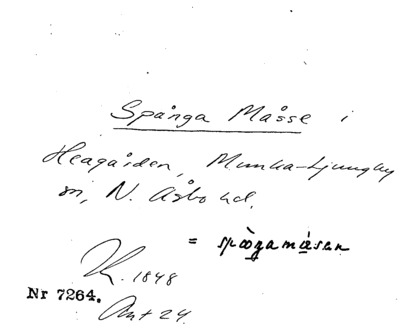 Spånga Måsse i
Heagården, Munka-Ljungby
sn, N. Åsbo hd.
= spåŋamåsan
K. 1848
Nr 7264.
Ant 24